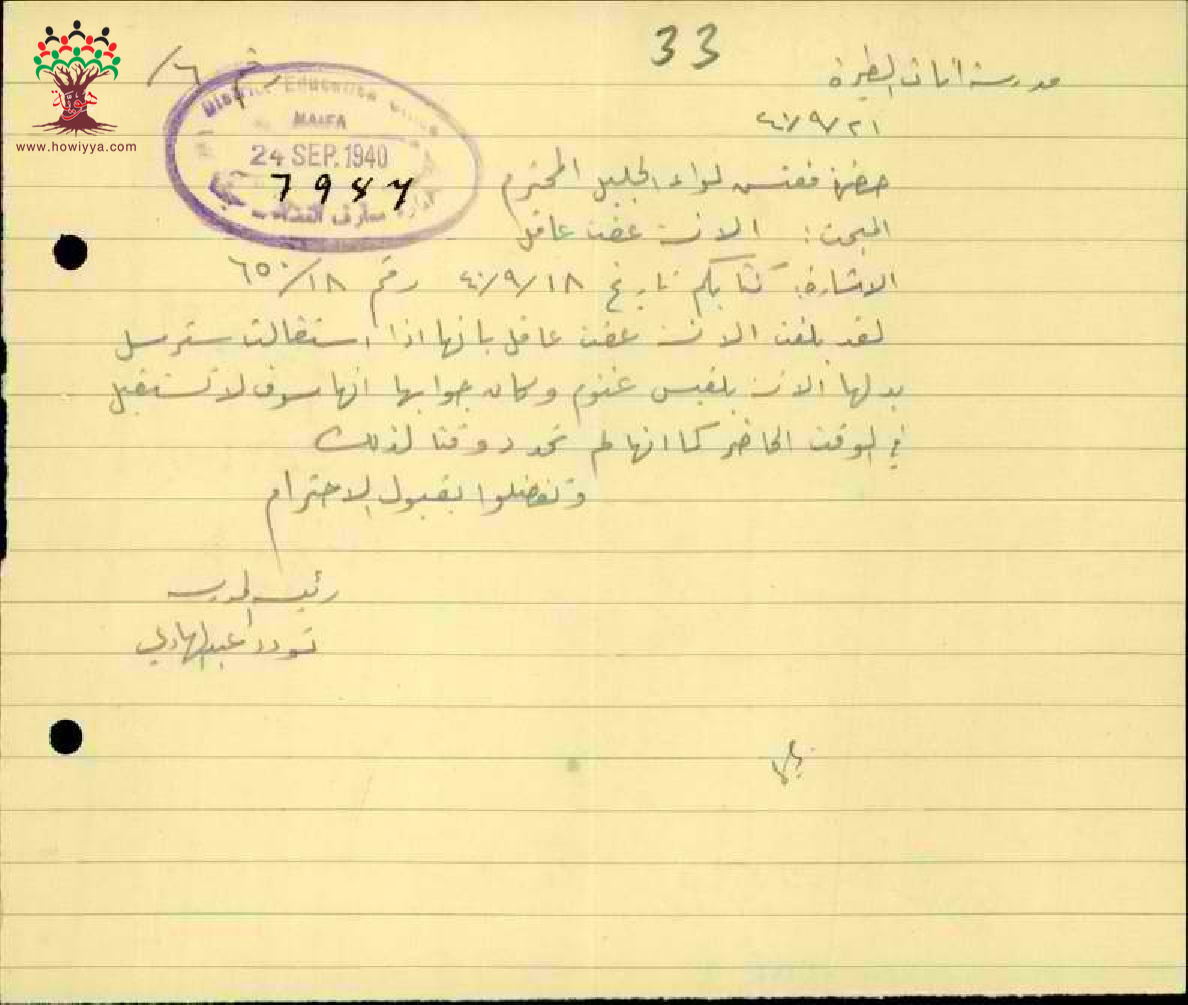 33
مدرسة اناث الطيرة
رقم ٦/
٤٠/٩/٢١
District Education Office
HAIFA
24 SEP. 1940
7987
ادارة معارف
حضرة مفتش لواء الجليل المحترم
المبحث: الانسة عفت عاقل
الاشارة: كتابكم تاريخ ٤٠/٩/١٨ رقم ٦٥٠/١٨
لقد بلغت الانسة عفت عاقل بانها اذا استقالت سترسل
بدلها الانسة بلقيس غنوم وكان جوابها انها سوف لا تستقيل
في الوقت الحاضر كما انها لم تحدد وقتا لذلك
وتفضلوا بقبول الاحترام
رئيسة المدرسة
تودد عبد الهادي
هوية
www.howiyya.com